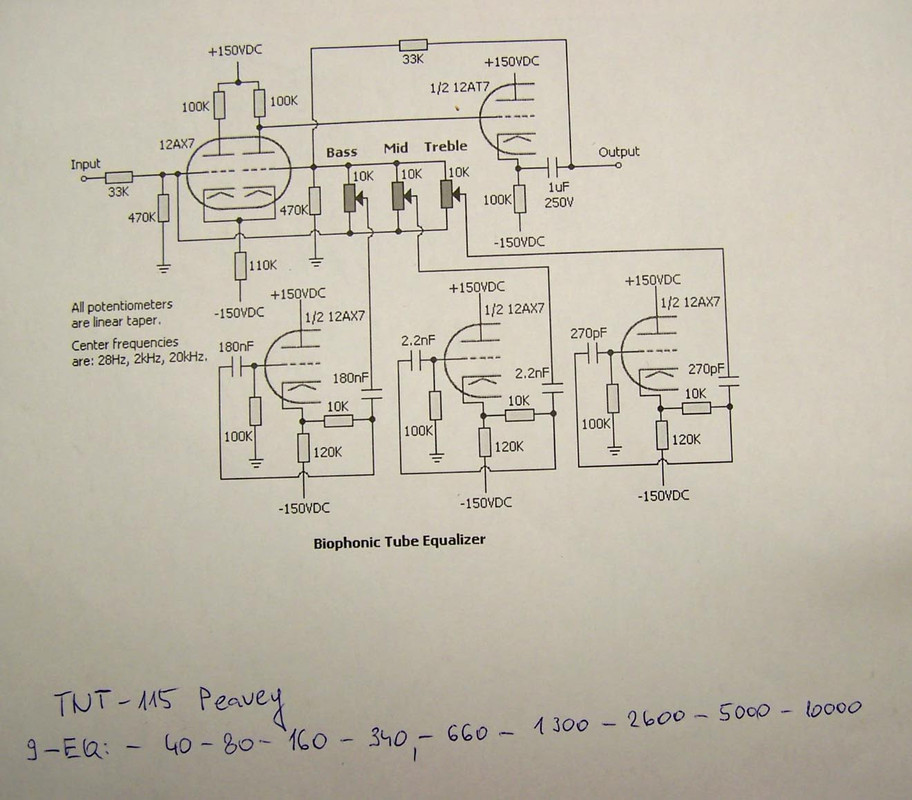 +150VDC
33K
+150VDC
1/2 12AT7
100K
100K
12AX7
Bass
Mid
Treble
Input
Output
10K
10K
10K
33K
1uF
250V
470K
470K
100K
-150VDC
110K
All potentiometers
are linear taper.
-150VDC
Center frequencies
are: 28Hz, 2kHz, 20kHz.
+150VDC
1/2 12AX7
180nF
180nF
10K
100K
120K
-150VDC
+150VDC
1/2 12AX7
2.2nF
2.2nF
10K
100K
120K
-150VDC
+150VDC
1/2 12AX7
270pF
270pF
10K
100K
120K
-150VDC
Biophonic Tube Equalizer
TNT-115 Peavey
9-EQ: - 40 - 80 - 160 - 340, - 660 - 1300 - 2600 - 5000 - 10000